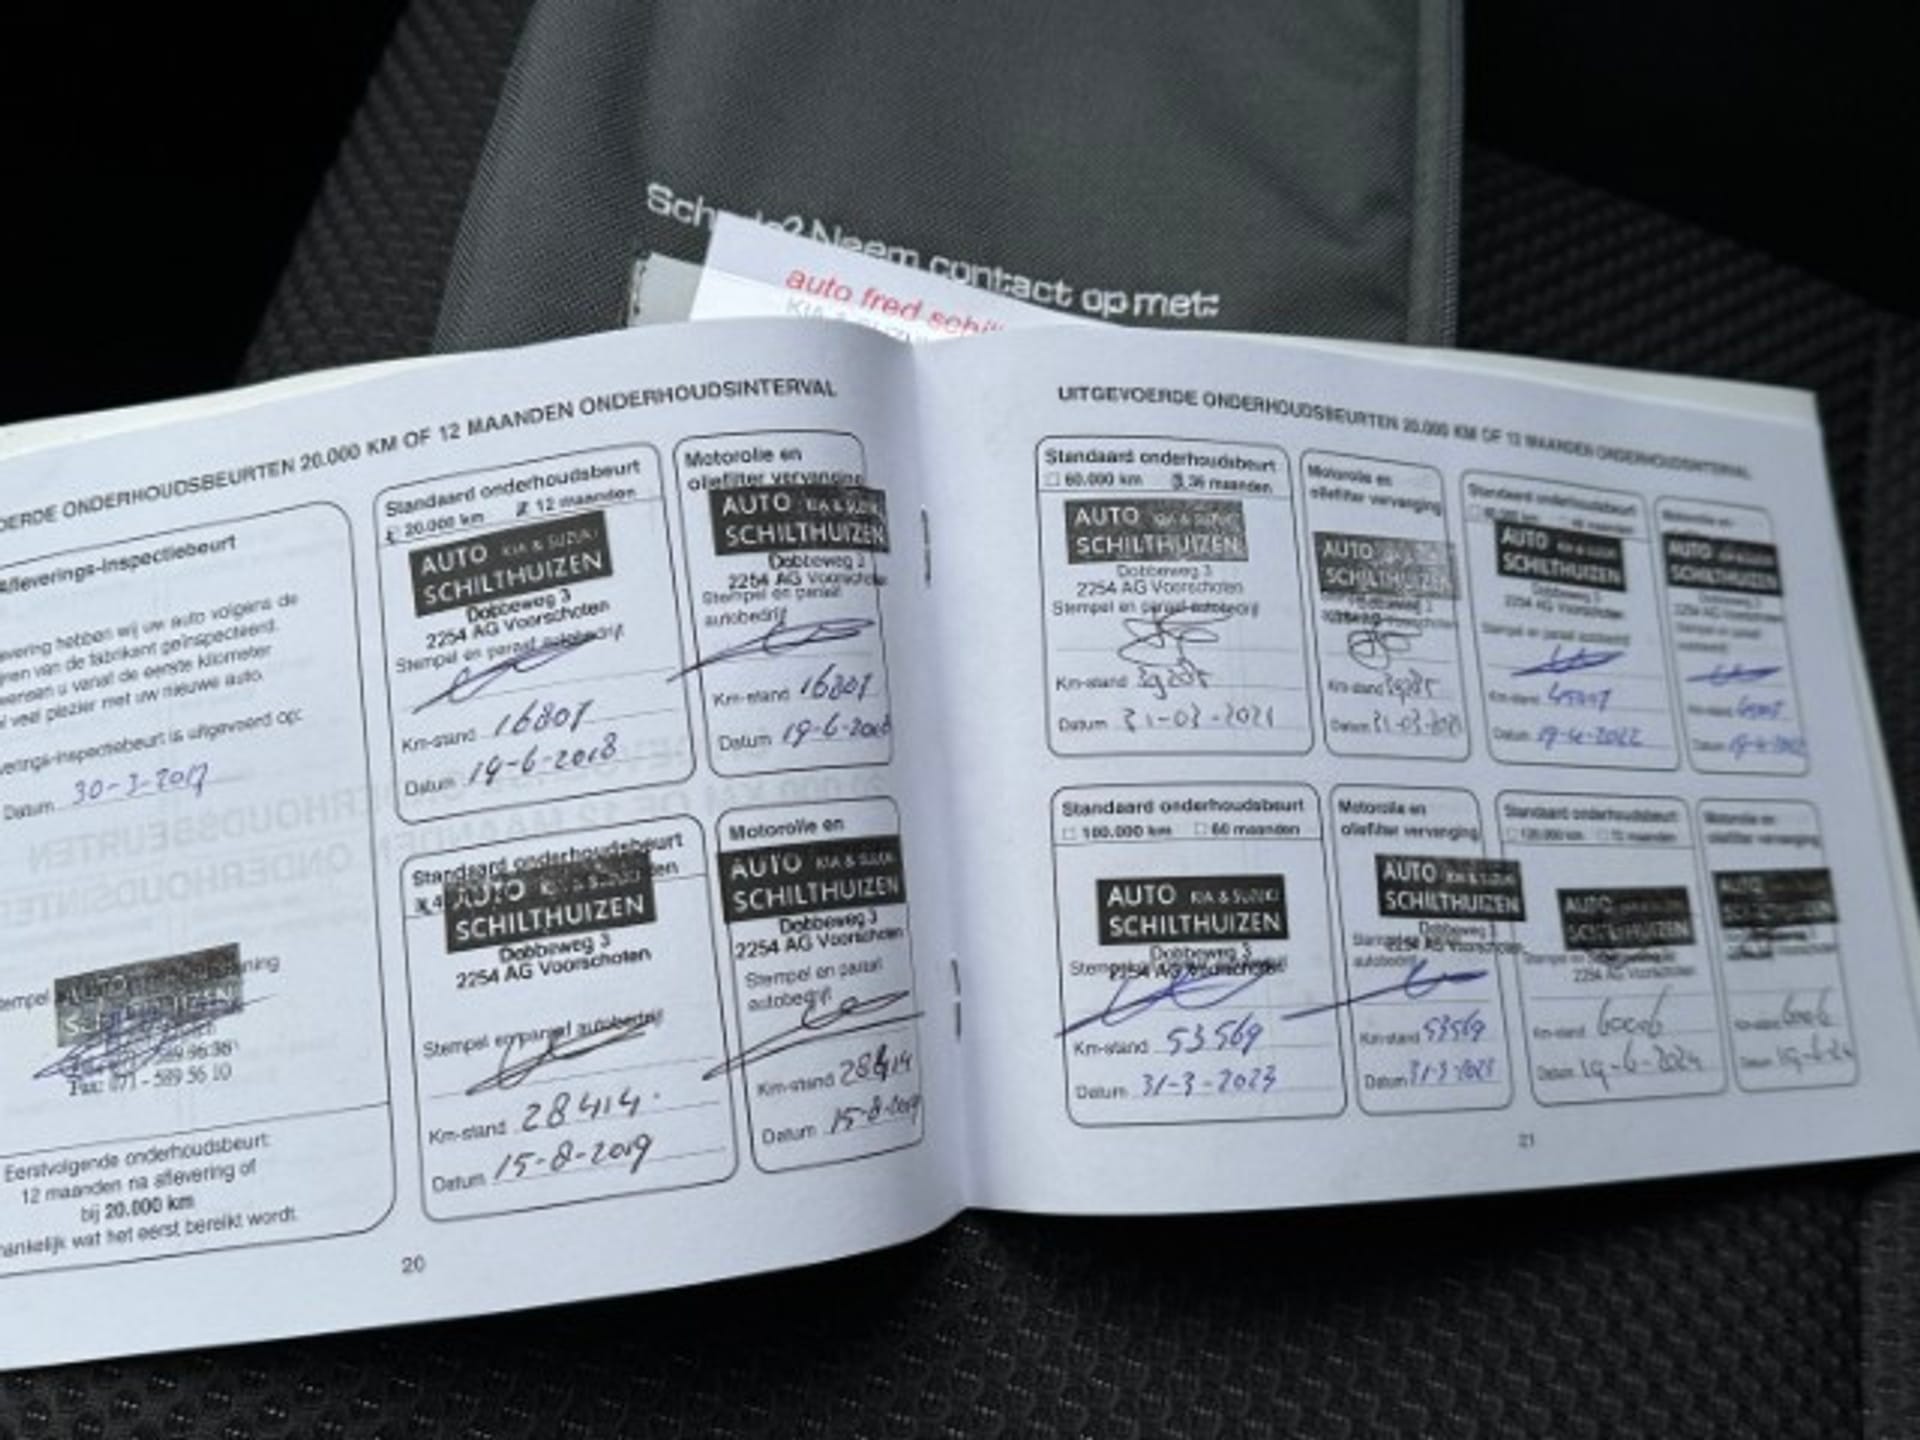 Neem contact op met:
auto fred schil
OERDE ONDERHOUDSBEURTEN 20.000 KM OF 12 MAANDEN ONDERHOUDSINTERVAL
Afleverings-inspectiebeurt
evering hebben wij uw auto volgens de
jnen van de fabrikant geïnspecteerd.
wensen u vanaf de eerste kilometer
el veel plezier met uw nieuwe auto.
verings-inspectiebeurt is uitgevoerd op:
Datum 30-3-2017
Stempel
Fax: 071 - 589 56 10
Eerstvolgende onderhoudsbeurt:
12 maanden na aflevering of
bij 20.000 km
hankelijk wat het eerst bereikt wordt.
20
Standaard onderhoudsbeurt
20.000 km 12 maanden
AUTO KIA & SUZUKI
SCHILTHUIZEN
Dobbeweg 3
2254 AG Voorschoten
Stempel en paraaf autobedrijf
Km-stand 16807
Datum 19-6-2018
Motorolie en
oliefilter vervanging
AUTO KIA & SUZUKI
SCHILTHUIZEN
Dobbeweg 3
2254 AG Voorschoten
Stempel en paraaf
autobedrijf
Km-stand 16807
Datum 19-6-2018
Standaard onderhoudsbeurt
AUTO KIA & SUZUKI
SCHILTHUIZEN
Dobbeweg 3
2254 AG Voorschoten
Stempel en paraaf autobedrijf
Km-stand 28414
Datum 15-8-2019
Motorolie en
AUTO KIA & SUZUKI
SCHILTHUIZEN
Dobbeweg 3
2254 AG Voorschoten
Stempel en paraaf
autobedrijf
Km-stand 28414
Datum 15-8-2019
UITGEVOERDE ONDERHOUDSBEURTEN 20.000 KM OF 12 MAANDEN ONDERHOUDSINTERVAL
Standaard onderhoudsbeurt
60.000 km 36 maanden
AUTO KIA & SUZUKI
SCHILTHUIZEN
Dobbeweg 3
2254 AG Voorschoten
Stempel en paraaf autobedrijf
Km-stand
Datum 31-03-2021
Motorolie en
oliefilter vervanging
AUTO
SCHILTHUIZEN
Km-stand
Datum 31-03-2021
Standaard onderhoudsbeurt
AUTO KIA & SUZUKI
SCHILTHUIZEN
Dobbeweg 3
2254 AG Voorschoten
Stempel en paraaf autobedrijf
Km-stand
Datum 19-4-2022
Motorolie en
AUTO
SCHILTHUIZEN
Datum 19-4-2022
Standaard onderhoudsbeurt
100.000 km 60 maanden
AUTO KIA & SUZUKI
SCHILTHUIZEN
Dobbeweg 3
2254 AG Voorschoten
Km-stand 53569
Datum 31-3-2023
Motorolie en
oliefilter vervanging
AUTO KIA & SUZUKI
SCHILTHUIZEN
Dobbeweg 3
2254 AG Voorschoten
Km-stand 53569
Datum 31-3-2023
Standaard onderhoudsbeurt
120.000 km 72 maanden
AUTO
SCHILTHUIZEN
2254 AG Voorschoten
Km-stand
Datum 19-6-2024
Motorolie en
oliefilter vervanging
AUTO
SCHILTHUIZEN
Km-stand
Datum 19-6-24
21